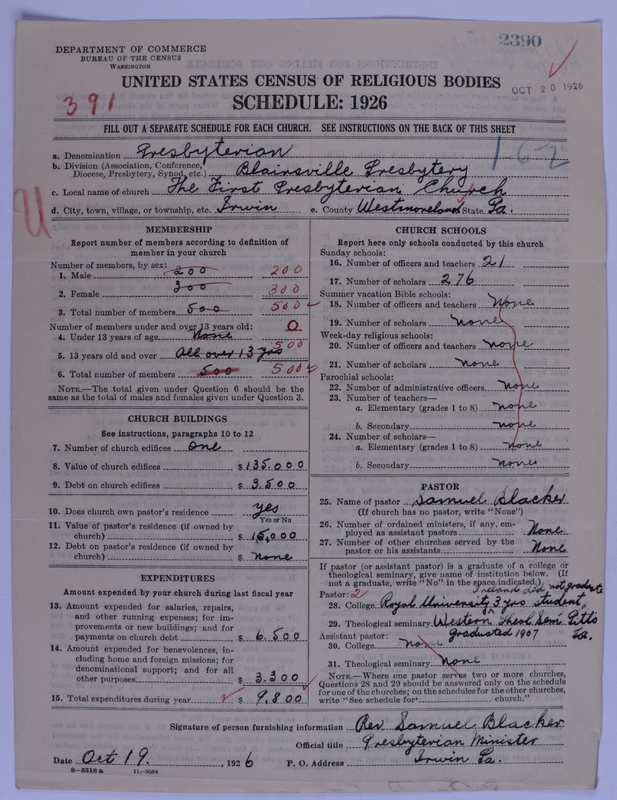 2390
DEPARTMENT OF COMMERCE
BUREAU OF THE CENSUS
WASHINGTON
OCT 20 1926
UNITED STATES CENSUS OF RELIGIOUS BODIES
391
SCHEDULE: 1926
FILL OUT A SEPARATE SCHEDULE FOR EACH CHURCH. SEE INSTRUCTIONS ON THE BACK OF THIS SHEET
162
a. Denomination Presbyterian
b. Division (Association, Conference, Diocese, Presbytery, Synod, etc.) Blairsville Presbytery
c. Local name of church The First Presbyterian Church
d. City, town, village, or township, etc. Irwin e. County Westmoreland State Pa.
MEMBERSHIP
Report number of members according to definition of
member in your church
Number of members, by sex:
1. Male 200 200
2. Female 300 300
3. Total number of members 500 500
Number of members under and over 13 years old:
4. Under 13 years of age None 0
5. 13 years old and over All over 13 yrs 500
6. Total number of members 500 500
NOTE.—The total given under Question 6 should be
same as the total of males and females given under Question 3.
CHURCH BUILDINGS
See instructions, paragraphs 10 to 12
7. Number of church edifices one
8. Value of church edifices $ 135,000
9. Debt on church edifices $ 3,500
10. Does church own pastor's residence yes
Yes or No
11. Value of pastor's residence (if owned by
church) $ 15,000
12. Debt on pastor's residence (if owned by
church) $ none
EXPENDITURES
Amount expended by your church during last fiscal year
13. Amount expended for salaries, repairs,
and other running expenses; for im-
provements or new buildings; and for
payments on church debt $ 6,500
14. Amount expended for benevolences, in-
cluding home and foreign missions; for
denominational support; and for all
other purposes $ 3,300
15. Total expenditures during year $ 9,800
CHURCH SCHOOLS
Report here only schools conducted by this church
Sunday schools:
16. Number of officers and teachers 21
17. Number of scholars 276
Summer vacation Bible schools:
18. Number of officers and teachers None
19. Number of scholars None
Week-day religious schools:
20. Number of officers and teachers none
21. Number of scholars none
Parochial schools:
22. Number of administrative officers none
23. Number of teachers—
a. Elementary (grades 1 to 8) none
b. Secondary none
24. Number of scholars—
a. Elementary (grades 1 to 8) none
b. Secondary none
PASTOR
25. Name of pastor Samuel Blacker
(If church has no pastor, write "None")
26. Number of ordained ministers, if any, em-
ployed as assistant pastors None
27. Number of other churches served by the
pastor or his assistants None
If pastor (or assistant pastor) is a graduate of a college or
theological seminary, give name of institution below. (If
not a graduate, write "No" in the space indicated.)
Pastor: 2 Ireland did not graduate
28. College Royal University 3 yrs student,
29. Theological seminary Western Theol Sem Pitts
Assistant pastor: graduated 1907 Pa.
30. College none
31. Theological seminary none
NOTE.—Where one pastor serves two or more churches,
Questions 28 and 29 should be answered only on the schedule
for one of the churches; on the schedules for the other churches,
write "See schedule for church."
Signature of person furnishing information Rev. Samuel Blacker
Official title Presbyterian Minister
Date Oct 19, 1926 P. O. Address Irwin Pa.
8—5518 a 11—9034